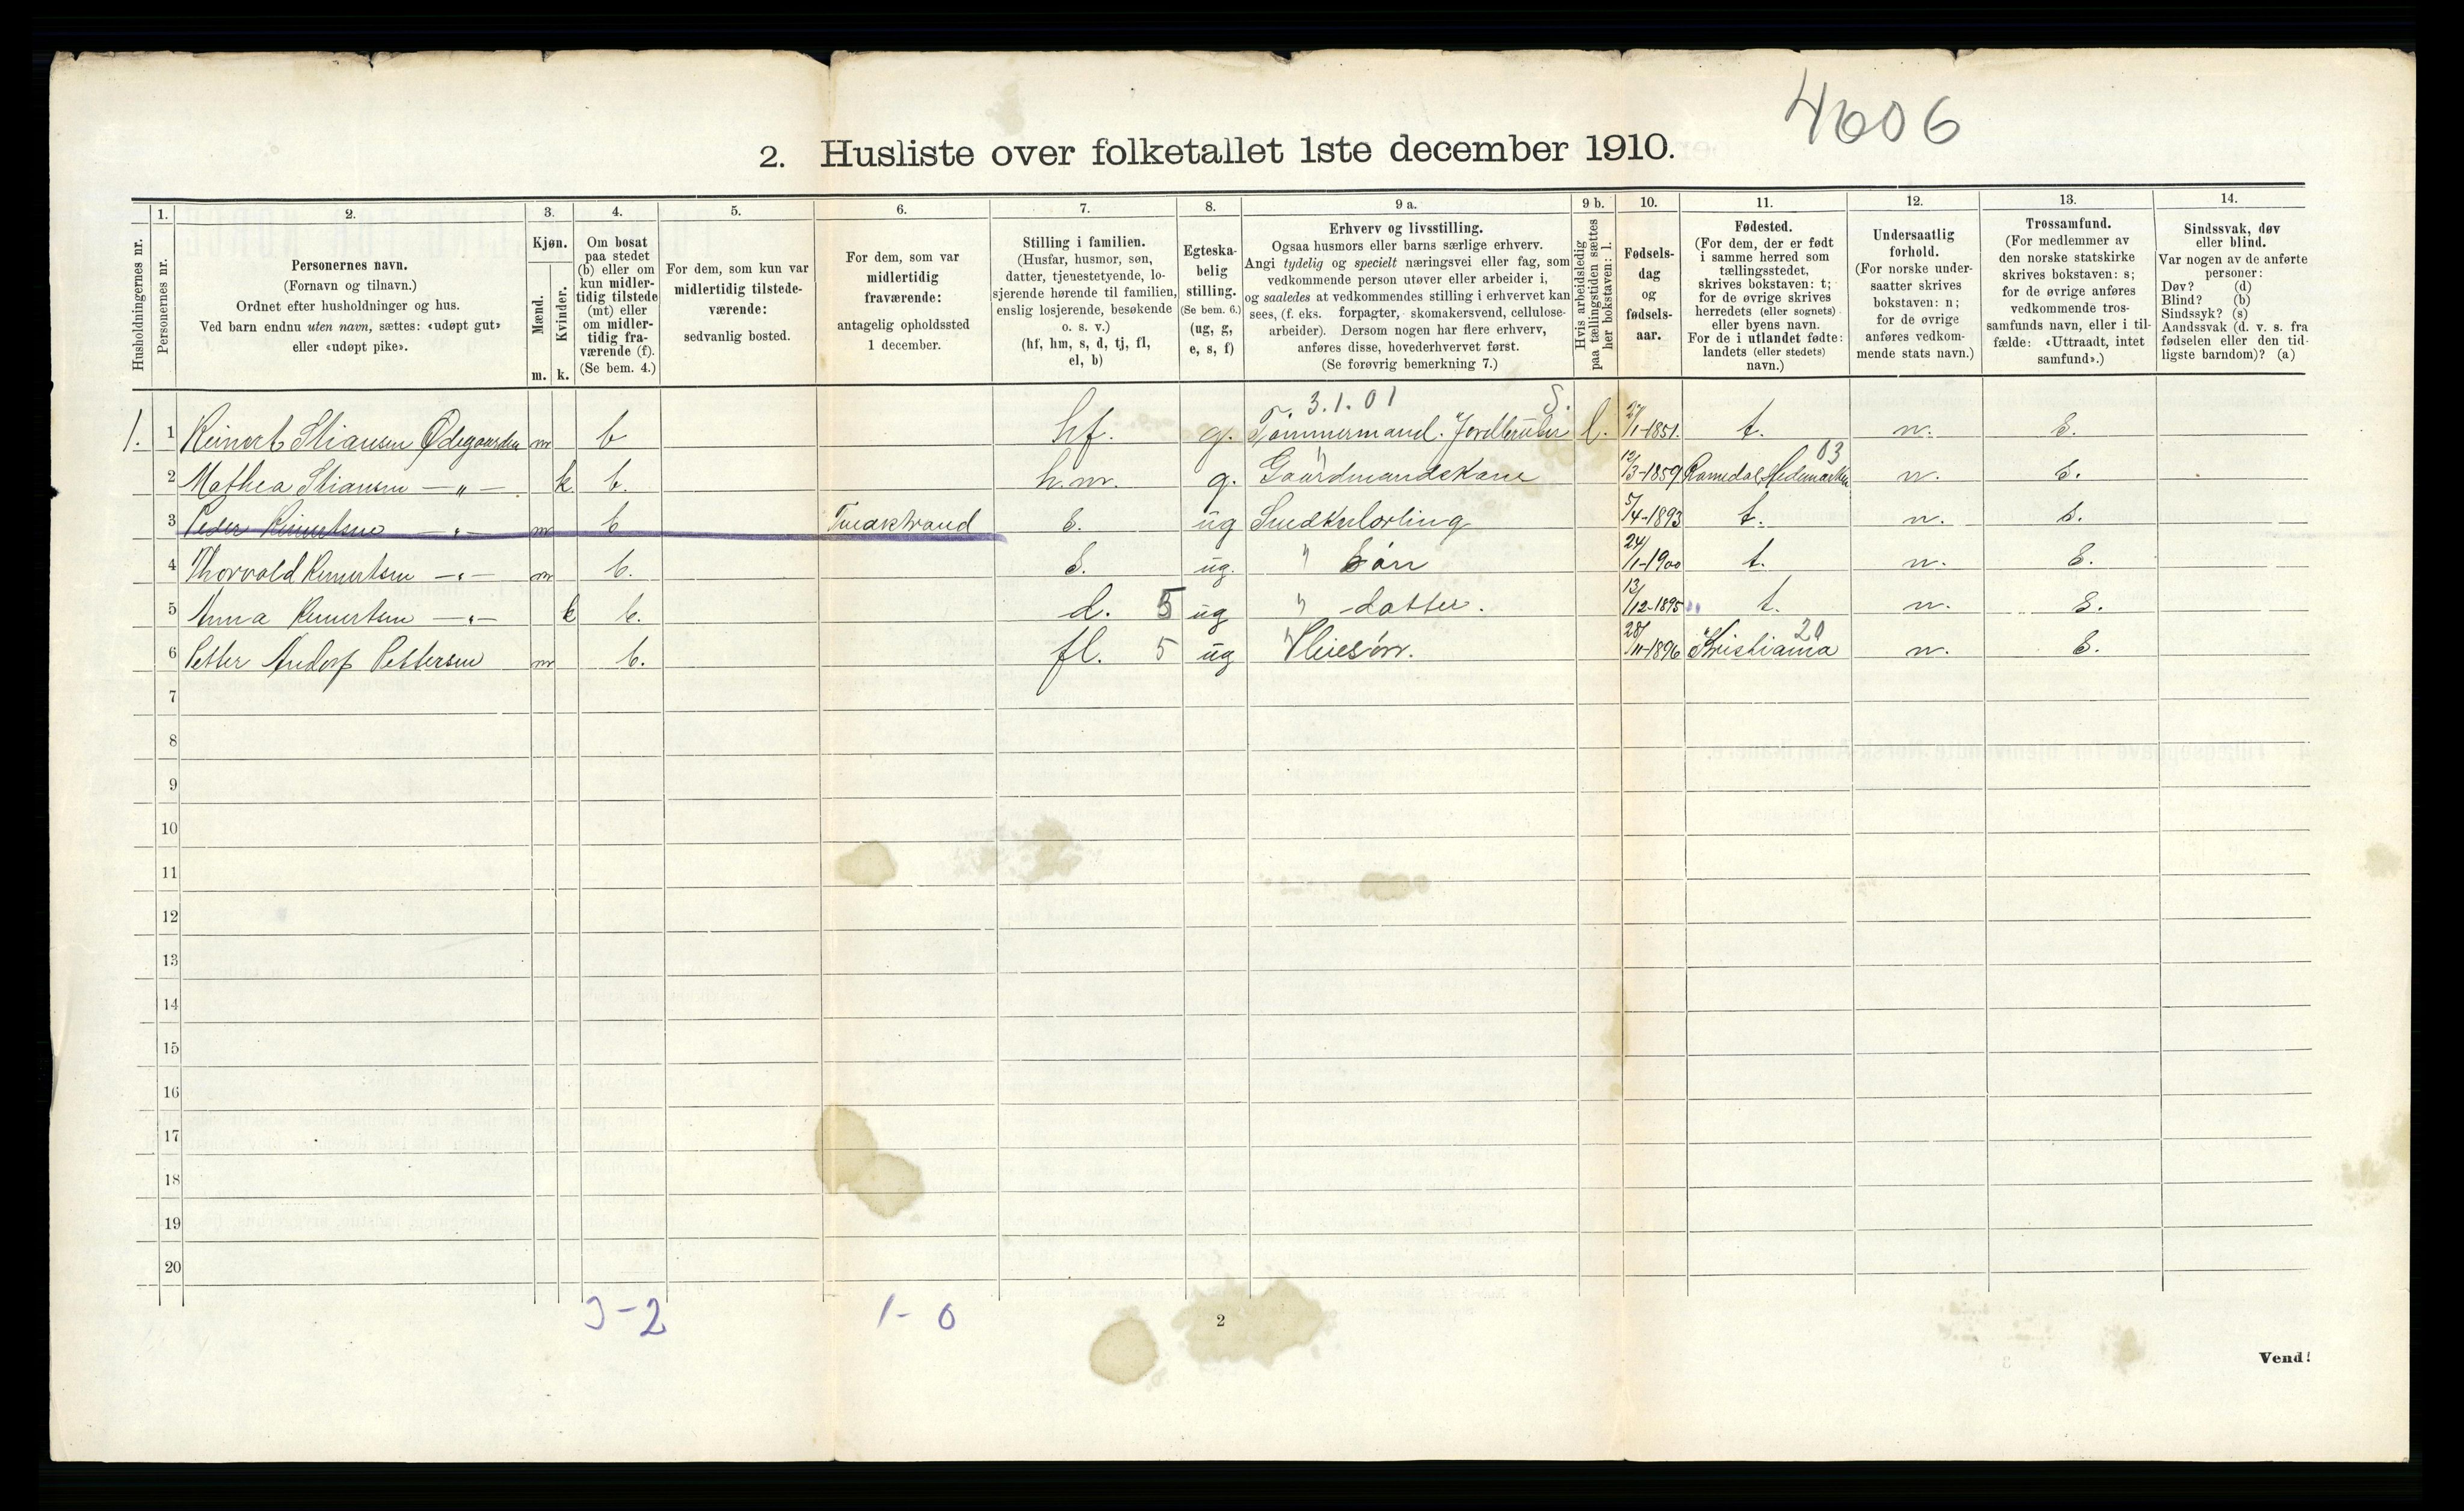 4606
2. Husliste over folketallet 1ste december 1910.
Husholdningernes nr.
1.
Personernes nr.
2.
Personernes navn.
(Fornavn og tilnavn.)
Ordnet efter husholdninger og hus.
Ved barn endnu uten navn, sættes: «udøpt gut»
eller «udøpt pike».
3.
Kjøn.
Mænd.
Kvinder.
m. k.
4.
Om bosat
paa stedet
(b) eller om
kun midler-
tidig tilstede
(mt) eller
om midler-
tidig fra-
værende (f).
(Se bem. 4.)
5.
For dem, som kun var
midlertidig tilstede-
værende:
sedvanlig bosted.
6.
For dem, som var
midlertidig
fraværende:
antagelig opholdssted
1 december.
7.
Stilling i familien.
(Husfar, husmor, søn,
datter, tjenestetyende, lo-
sjerende hørende til familien,
enslig losjerende, besøkende
o. s. v.)
(hf, hm, s, d, tj, fl,
el, b)
8.
Egteska-
belig
stilling.
(Se bem. 6.)
(ug, g,
e, s, f)
9 a.
Erhverv og livsstilling.
Ogsaa husmors eller barns særlige erhverv.
Angi tydelig og specielt næringsvei eller fag, som
vedkommende person utøver eller arbeider i,
og saaledes at vedkommendes stilling i erhvervet kan
sees, (f. eks. forpagter, skomakersvend, cellulose-
arbeider). Dersom nogen har flere erhverv,
anføres disse, hovederhvervet først.
(Se forøvrig bemerkning 7.)
9 b.
Hvis arbeidsledig
paa tællingstiden sættes
her bokstaven: l.
10.
Fødsels-
dag
og
fødsels-
aar.
11.
Fødested.
(For dem, der er født
i samme herred som
tællingsstedet,
skrives bokstaven: t;
for de øvrige skrives
herredets (eller sognets)
eller byens navn.
For de i utlandet fødte:
landets (eller stedets)
navn.)
12.
Undersaatlig
forhold.
(For norske under-
saatter skrives
bokstaven: n;
for de øvrige
anføres vedkom-
mende stats navn.)
13.
Trossamfund.
(For medlemmer av
den norske statskirke
skrives bokstaven: s;
for de øvrige anføres
vedkommende tros-
samfunds navn, eller i til-
fælde: «Uttraadt, intet
samfund».)
14.
Sindssvak, døv
eller blind.
Var nogen av de anførte
personer:
Døv? (d)
Blind? (b)
Sindssyk? (s)
Aandssvak (d. v. s. fra
fødselen eller den tid-
ligste barndom)? (a)
3.1.01 S.
1. 1 Reinert Stiansen Ødegaarden m b hf. g. Tømmermand. Jordbruker l. 27/1-1851. t. n. S.
03
2 Mathea Stiansen —„— k b. h.m. g. Gaardmandskone 12/3-1859 Romedal Hedemarken n. S.
3 Peder Reinertsen —„— m b Tvedestrand S. ug Smedkulærling 5/4-1893 t. n. S.
4 Thorvald Reinertsen —„— m b. S. ug. " Søn 24/1-1900 t. n. S.
5 Anna Reinertsen —„— k b. d. 5 ug " datter. 13/12-1895 t. n. S.
20
6 Petter Andorf Pettersen m b. fl. 5 ug " Pleiesøn. 28/11-1896 Kristiania n. S.
7
8
9
10
11
12
13
14
15
16
17
18
19
20
3-2 1-0
2
Vend!